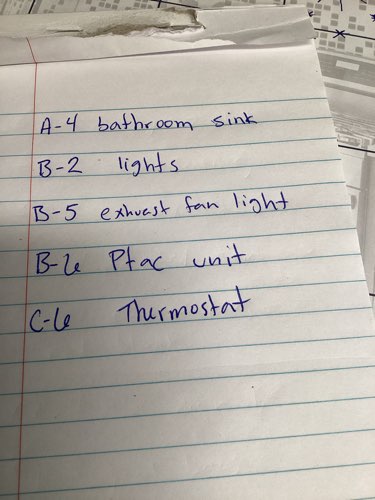 A-4 bathroom sink
B-2 lights
B-5 exhuast fan light
B-6 Ptac unit
C-6 Thermostat